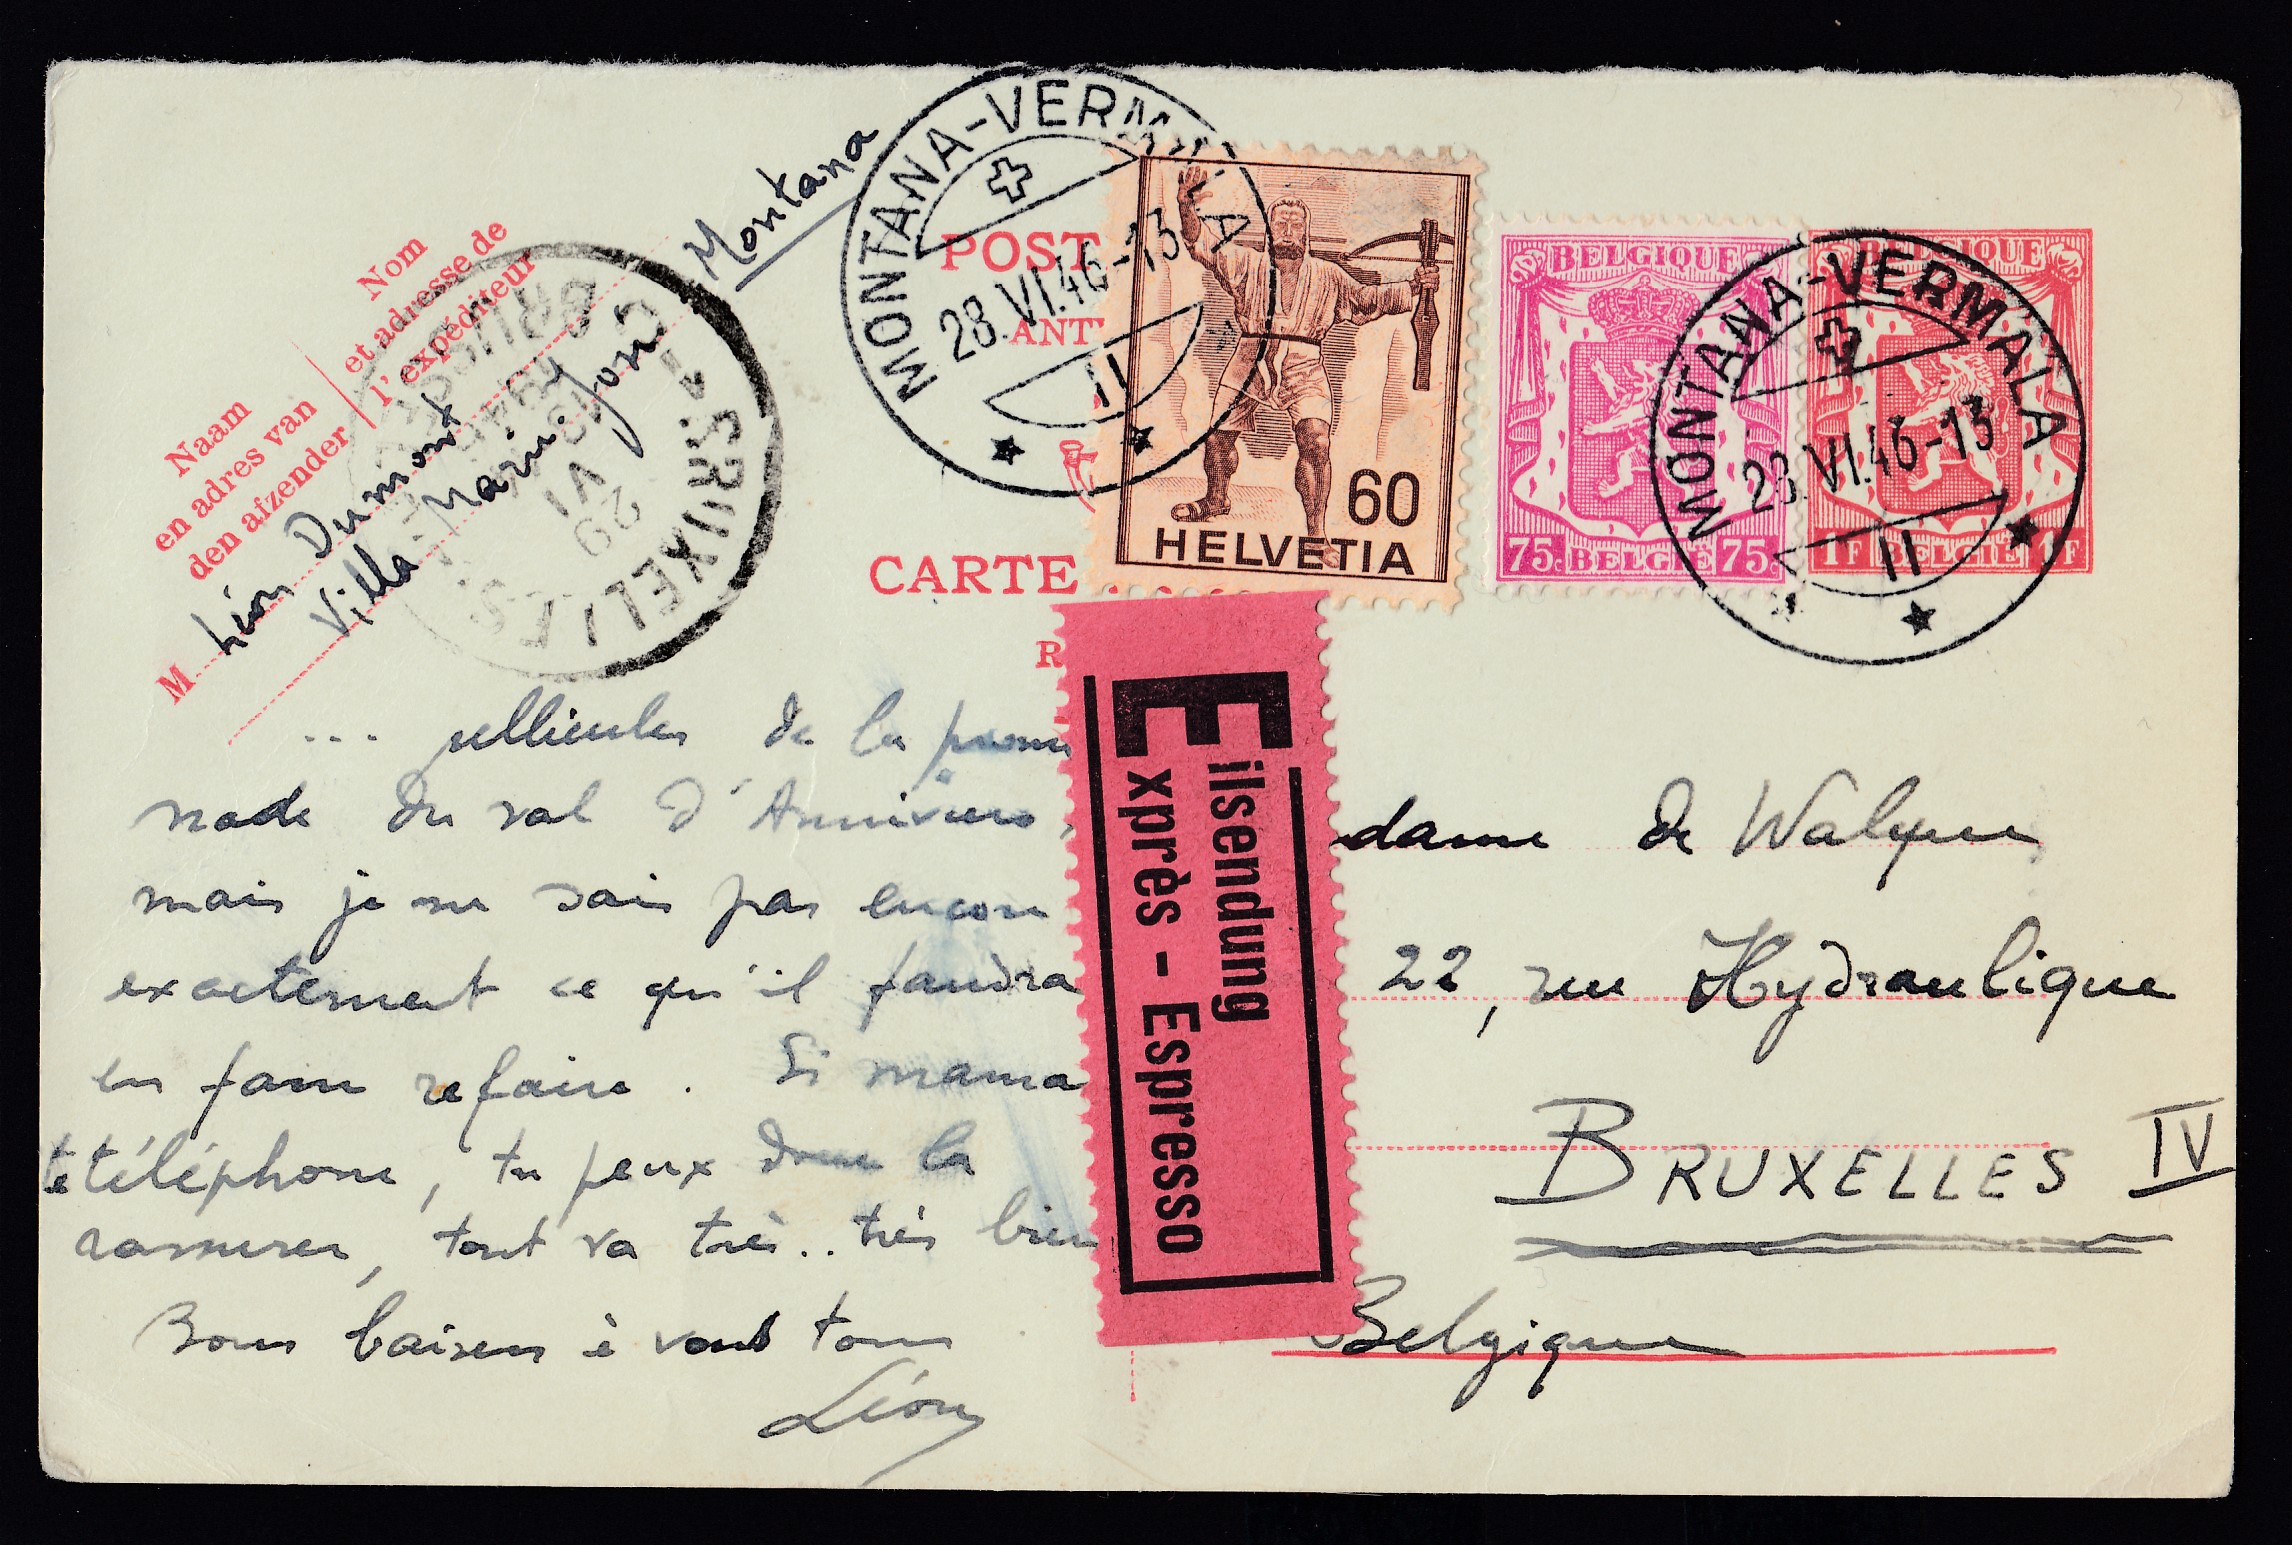 Naam
en adres van
den afzender
Nom
et adresse de
l'expéditeur
M. Léon Dumont
Villa Marie
Montana
BRUXELLES
29
VI
MONTANA-VERMALA
28.VI.46-13
11
POST
ANT
CARTE
R
60
HELVETIA
BELGIQUE
75c BELGIË 75c
BELGIQUE
1F BELGIË 1F
MONTANA-VERMALA
28.VI.46-13
11
Eilsendung
Exprès - Espresso
... pellicules de la prome
nade du val d'Anniviers,
mais je ne sais pas encore
exactement ce qu'il faudra
en faire refaire. Si mama
te téléphone, tu peux donc la
rassurer, tout va très.. très bien
Bons baisers à vous tous
Léon
dame de
22, rue Hydraulique
BRUXELLES IV
Belgique